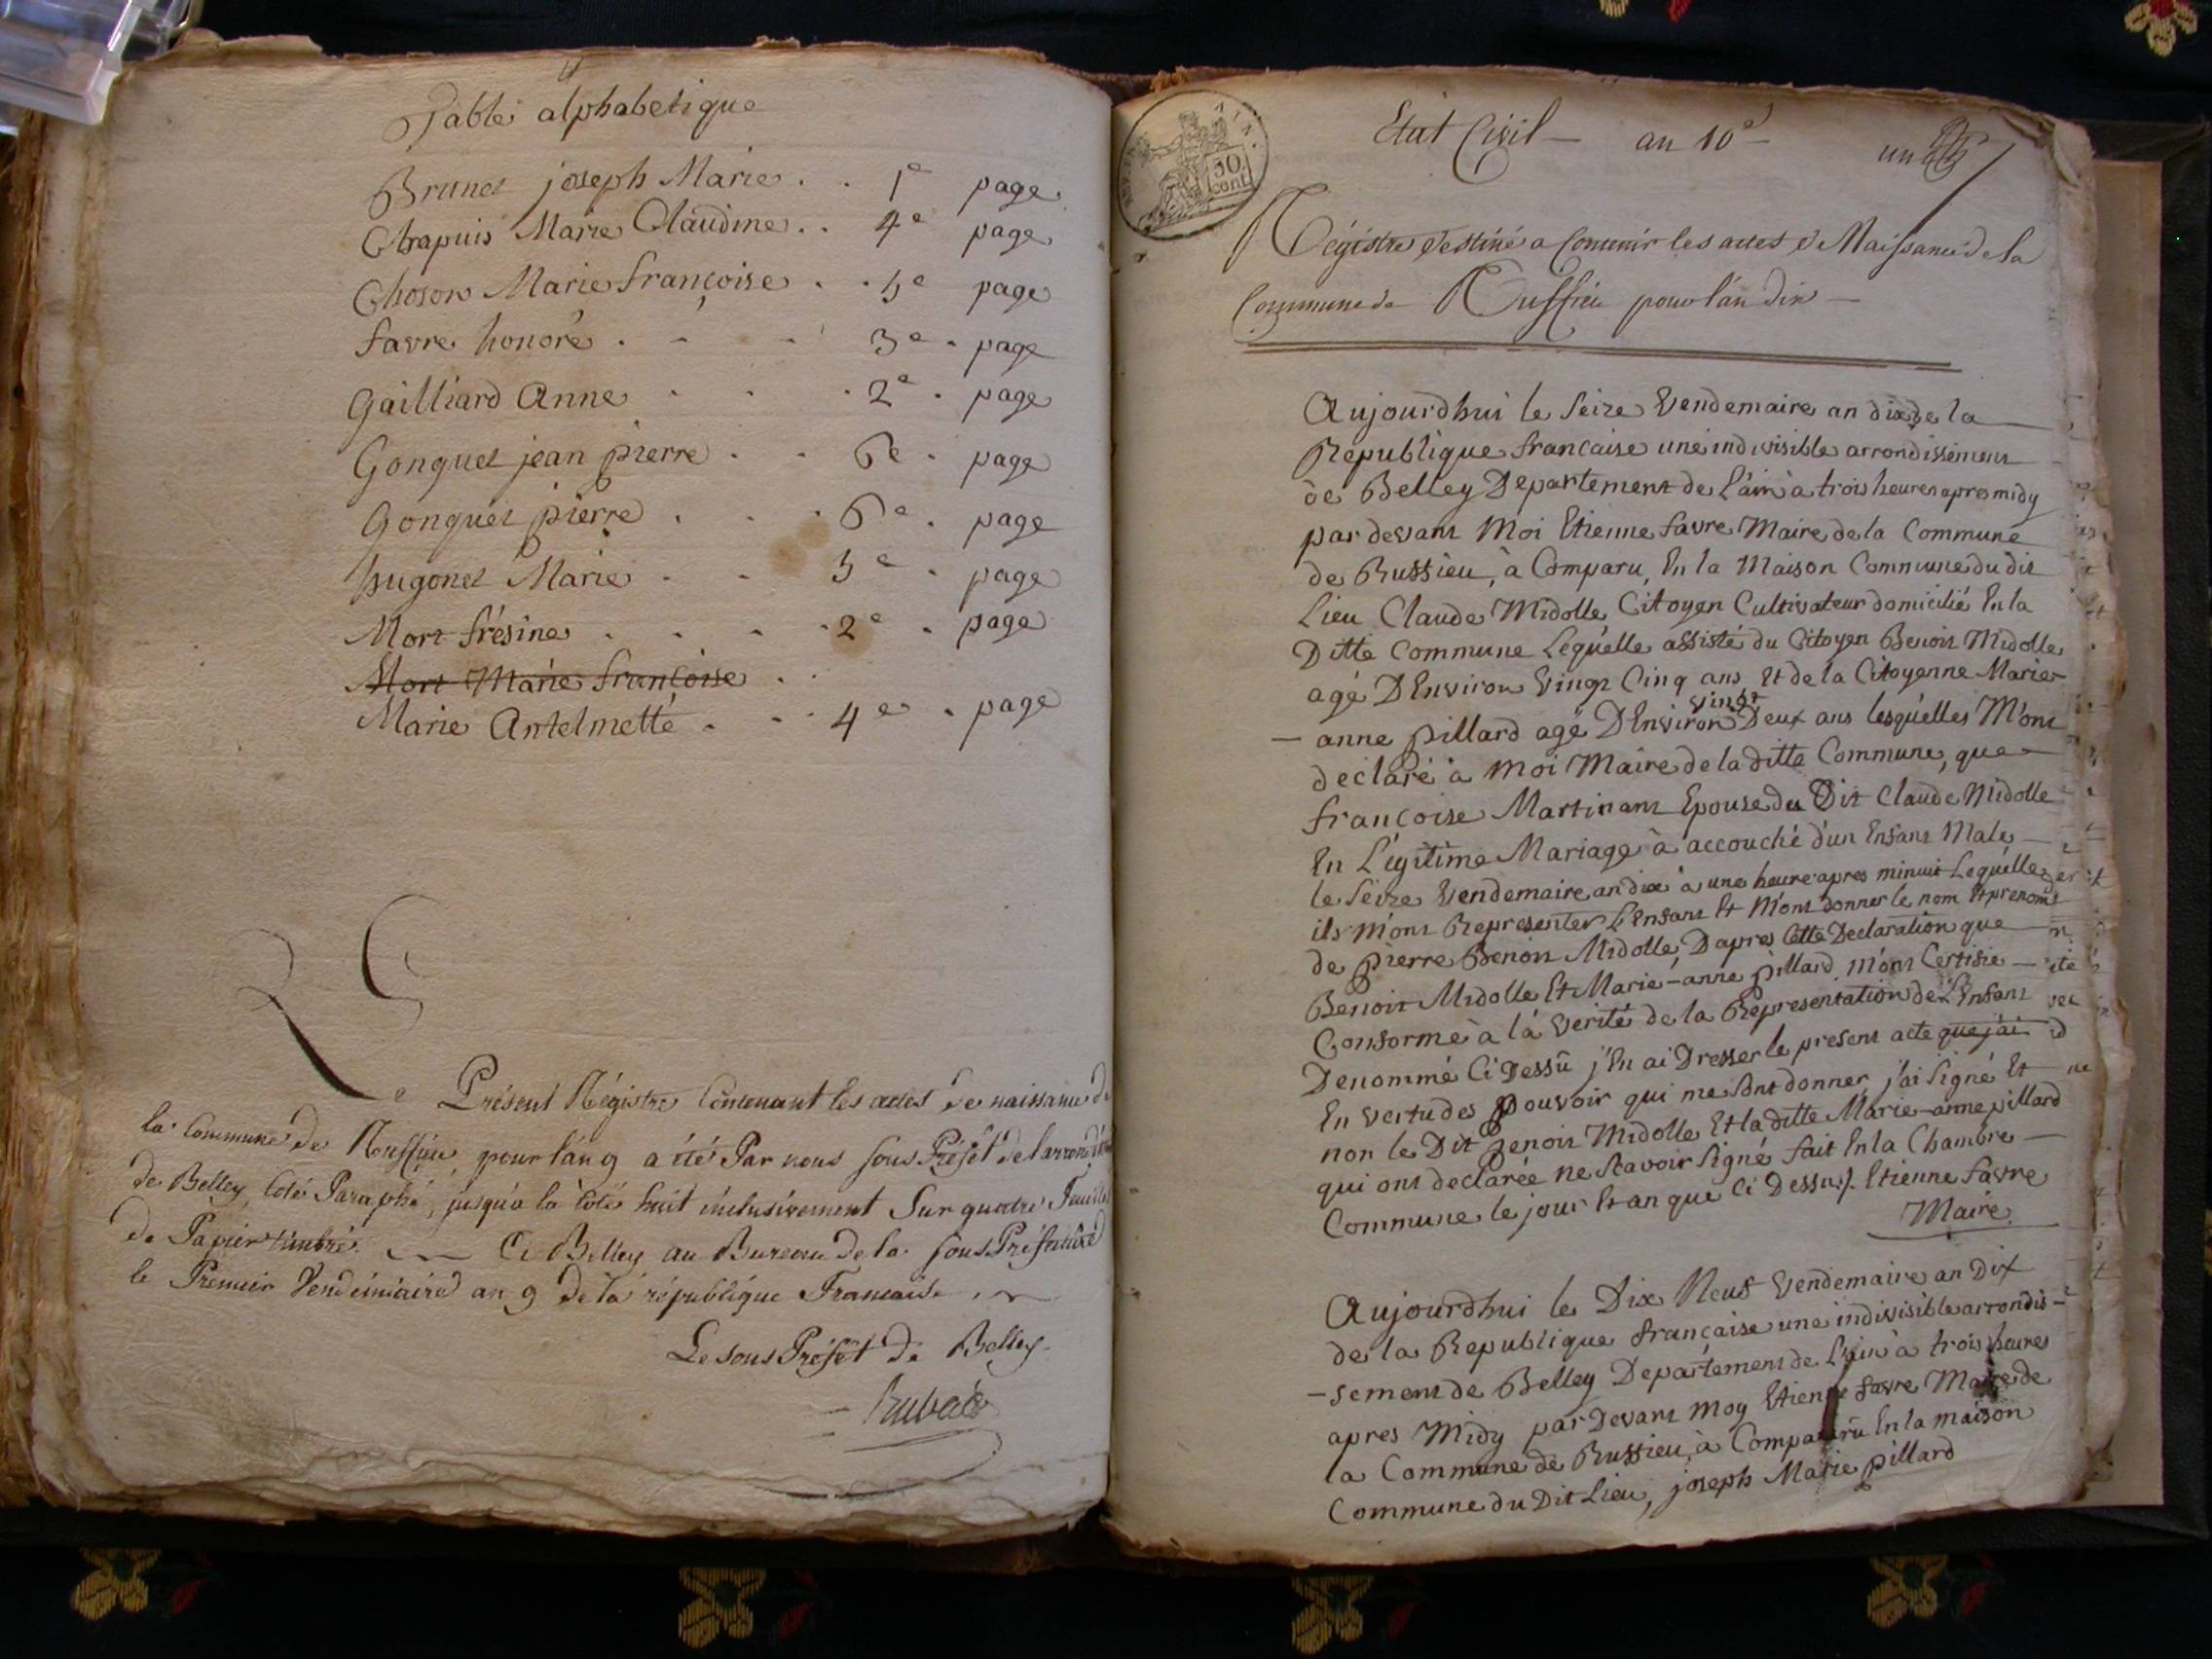 Table alphabetique
Brunet joseph Marie . . 1e page
Chapuis Marie Claudine . . 4e page
Choson Marie françoise . . 5e page
favre honoré . - - 3e . page
Gailliard Anne . . . 2e . page
Gonguet jean pierre . . 6e . page
Gonguet pierre . . . 6e . page
hugonet Marie . - 3e . page
Mort frésine . . . . 2e . page
Mort Marie françoise . .
Marie Antelmette . . . 4e . page
Le Présent Régistre Contenant les actes de naissance de
la Commune de Rouffieu, pour l'an 9 a été Par nous sous Préfet de l'arrondis
de Belley, Coté Paraphé, jusqu'a la cote huit inclusivement Sur quatre Feuilles
de Papier timbré. — A Belley au Bureau de la sous Préfecture
le Premier Vendémiaire an 9 de la république Francaise
Le sous Préfet de Belley
50
cent
Etat Civil — an 10e — un
Régistre destiné a Contenir les actes de Naissance de la
Commune de Ruffieu pour l'an dix —
Aujourdhui le Seize Vendemaire an dix de la
Republique francaise une indivisible arrondissement
de Belley Departement de L'ain à trois heures apres midy
par devant Moi Etienne favre Maire de la Commune
de Russieu, à Comparu, En la Maison Commune du dit
Lieu Claude Midolle Citoyen Cultivateur domicilié En la
Ditte Commune Lequelle assisté du Citoyen Benoit Midolle
agé DEnviron Vingt Cinq ans Et de la Citoyenne Marie-
— anne pillard agé DEnviron vingt Deux ans lesquelles M'ont
declaré à Moi Maire de la ditte Commune, que —
françoise Martinant Epouse du Dit Claude Midolle
En Légitime Mariage à accouché d'un Enfant Male —
le Seize Vendemaire an dix à une heure apres minuit Lequelle
ils m'ont Representer L'Enfant Et M'ont donner le nom Et prenoms
de pierre Benoit Midolle, D'apres Cette Declaration que
Benoit Midolle Et Marie-anne pillard M'ont Certifie —
Conforme à la Verité de la Representation de L'Enfant
Denommé Ci Dessû j'En ai Dresser le present acte que j'ai
En vertu des pouvoir qui me sont donner, j'ai Signé Et
non le Dit Benoit Midolle Et la ditte Marie-anne pillard
qui ont declarée ne Scavoir Signé fait En la Chambre —
Commune le jour Et an que Ci Dessus /. Etienne favre
Maire
Aujourdhui le Dix Neuf Vendemaire an Dix
de la Republique française une indivisible arrondis-
-sement de Belley Departement de L'ain à trois heures
apres Midy par Devant Moy Etienne favre Maire de
la Commune de Russieu, à Comparru En la maison
Commune du Dit Lieu, joseph Marie pillard